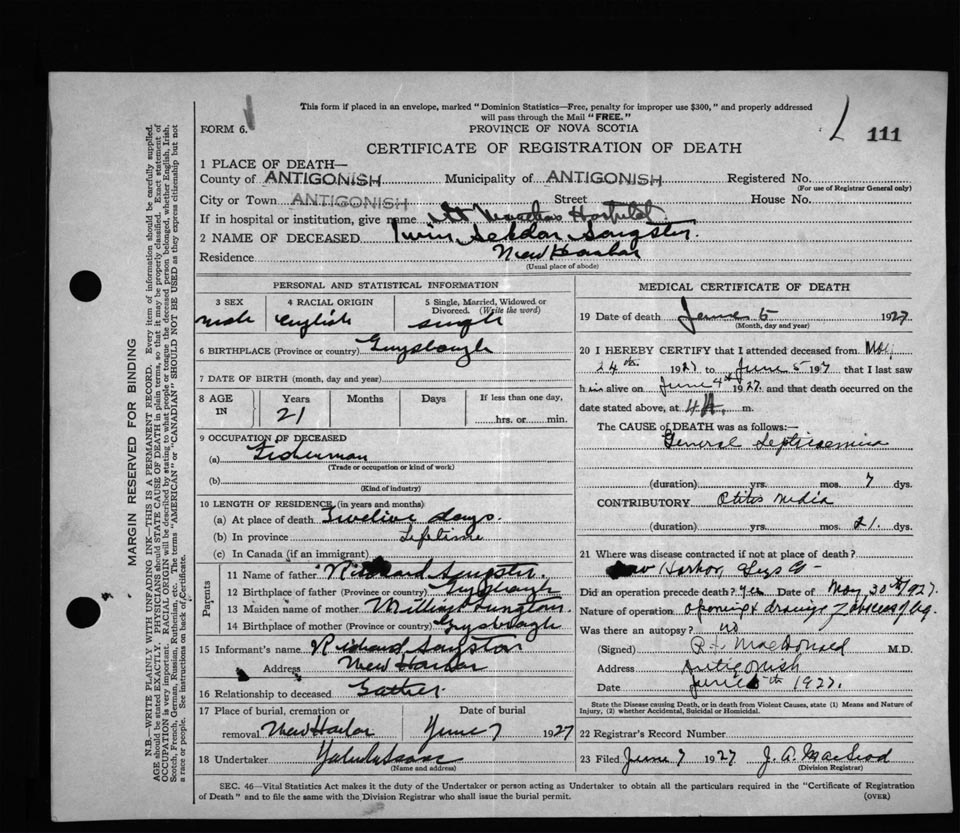 This form if placed in an envelope, marked "Dominion Statistics—Free, penalty for improper use $300," and properly addressed
will pass through the Mail "FREE."
FORM 6.
PROVINCE OF NOVA SCOTIA
L 111
CERTIFICATE OF REGISTRATION OF DEATH
1 PLACE OF DEATH—
County of ANTIGONISH Municipality of ANTIGONISH Registered No.
(For use of Registrar General only)
City or Town ANTIGONISH Street House No.
If in hospital or institution, give name St Hospital
2 NAME OF DECEASED Sangster.
Residence New Harbor
(Usual place of abode)
PERSONAL AND STATISTICAL INFORMATION
3 SEX 4 RACIAL ORIGIN 5 Single, Married, Widowed or
Divorced. (Write the word)
Male English Single
6 BIRTHPLACE (Province or country) Guysborough
7 DATE OF BIRTH (month, day and year)
8 AGE IN Years Months Days If less than one day,
21 hrs. or min.
9 OCCUPATION OF DECEASED
(a) Fisherman
(Trade or occupation or kind of work)
(b)
(Kind of industry)
10 LENGTH OF RESIDENCE (in years and months)
(a) At place of death Twelve days.
(b) In province Lifetime
(c) In Canada (if an immigrant)
Parents
11 Name of father Richard Sangster.
12 Birthplace of father (Province or country) Guysborough
13 Maiden name of mother
14 Birthplace of mother (Province or country) Guysborough
15 Informant's name Richard Sangster
Address New Harbor
16 Relationship to deceased Father.
17 Place of burial, cremation or Date of burial
removal New Harbor June 7 1927
18 Undertaker
(Name and address)
MEDICAL CERTIFICATE OF DEATH
19 Date of death June 5 1927
(Month, day and year)
20 I HEREBY CERTIFY that I attended deceased from May
24th 1927 to June 5 1927 that I last saw
him alive on June 4th 1927 and that death occurred on the
date stated above, at 4 A. m.
The CAUSE OF DEATH was as follows:—
General Septicaemia
(duration) yrs. mos. 7 dys.
CONTRIBUTORY Otitis Media
(duration) yrs. mos. 21 dys.
21 Where was disease contracted if not at place of death?
New Harbor, Guys Co
Did an operation precede death? Yes Date of May 30th/927.
Nature of operation opening & drainage of abscess of leg.
Was there an autopsy? no
(Signed) MacDonald M.D.
Address Antigonish
Date June 5th 1927.
State the Disease causing Death, or in death from Violent Causes, state (1) Means and Nature of
Injury, (2) whether Accidental, Suicidal or Homicidal.
22 Registrar's Record Number
23 Filed June 7 1927 J. A. MacLeod
(Division Registrar)
SEC. 46—Vital Statistics Act makes it the duty of the Undertaker or person acting as Undertaker to obtain all the particulars required in the "Certificate of Registration
of Death" and to file the same with the Division Registrar who shall issue the burial permit. (OVER)
MARGIN RESERVED FOR BINDING
N.B.—WRITE PLAINLY WITH UNFADING INK—THIS IS A PERMANENT RECORD. Every item of information should be carefully supplied.
AGE should be stated EXACTLY. PHYSICIANS should STATE CAUSE OF DEATH in plain terms, so that it may be properly classified. Exact statement of
OCCUPATION is very important. RACIAL ORIGIN will be described by stating to what people or tongue the deceased person belonged, whether English, Irish,
Scotch, French, German, Russian, Ruthenian, etc. The terms "AMERICAN" or "CANADIAN" SHOULD NOT BE USED as they express citizenship but not
a race or people. See instructions on back of Certificate.